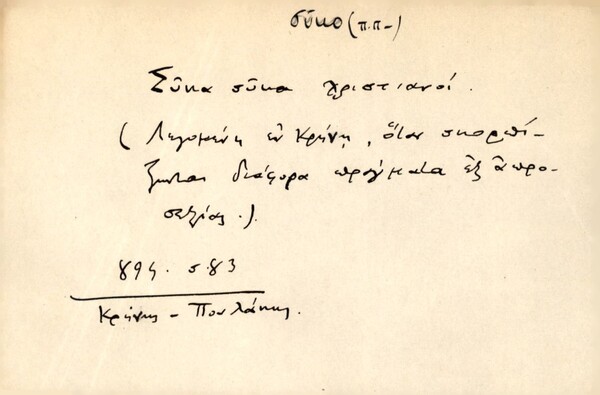 σῦκο (π.π-)
Σῦκα σῦκα χριστιανοί.
(Λεγομένη ἐν Κρήνῃ, ὅταν σκορπί-
ζωνται διάφορα πράγματα ἐξ ἀπρο-
σεξίας.).
894. σ.83
Κρήνης - Πουλάκης.